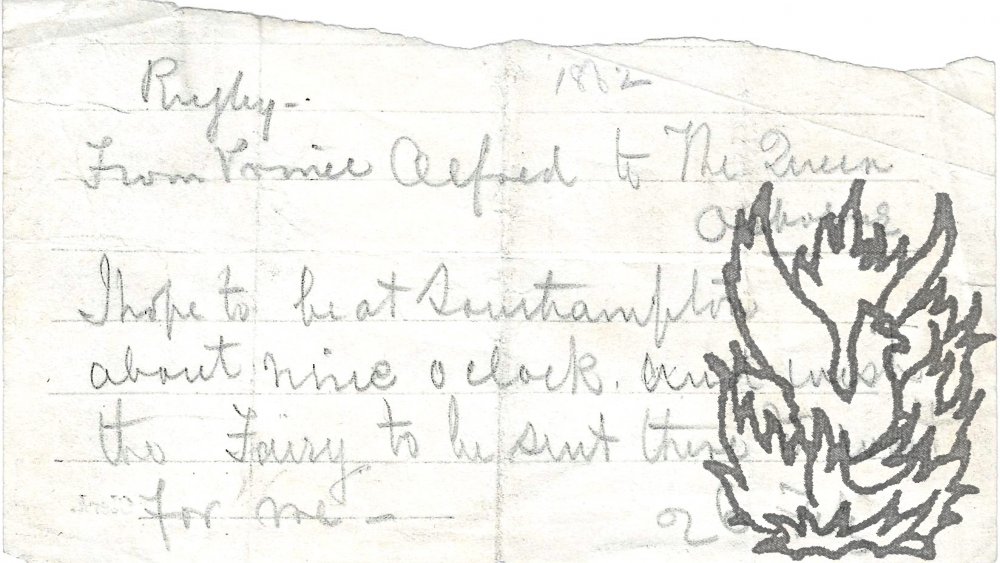 Rugby -
1862
From Prince Alfred to The Queen
Osborne
I hope to be at Southampton
about nine o'clock. and
the Fairy to be sent there
for me -